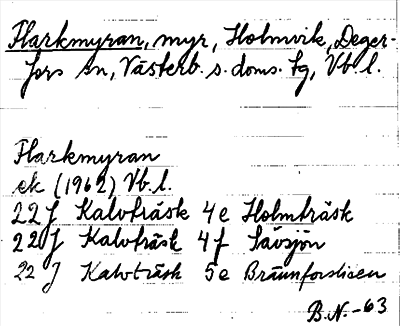 Flarkmyran, myr, Holmvik, Deger-
fors sn, Västerb. s. doms. tg, Vb. l.
Flarkmyran
ek (1962) Vb. l.
22 J Kalvträsk 4e Holmträsk
22 J Kalvträsk 4f Sävsjön
22 J Kalvträsk 5e Brännforsliden
B.N. -63